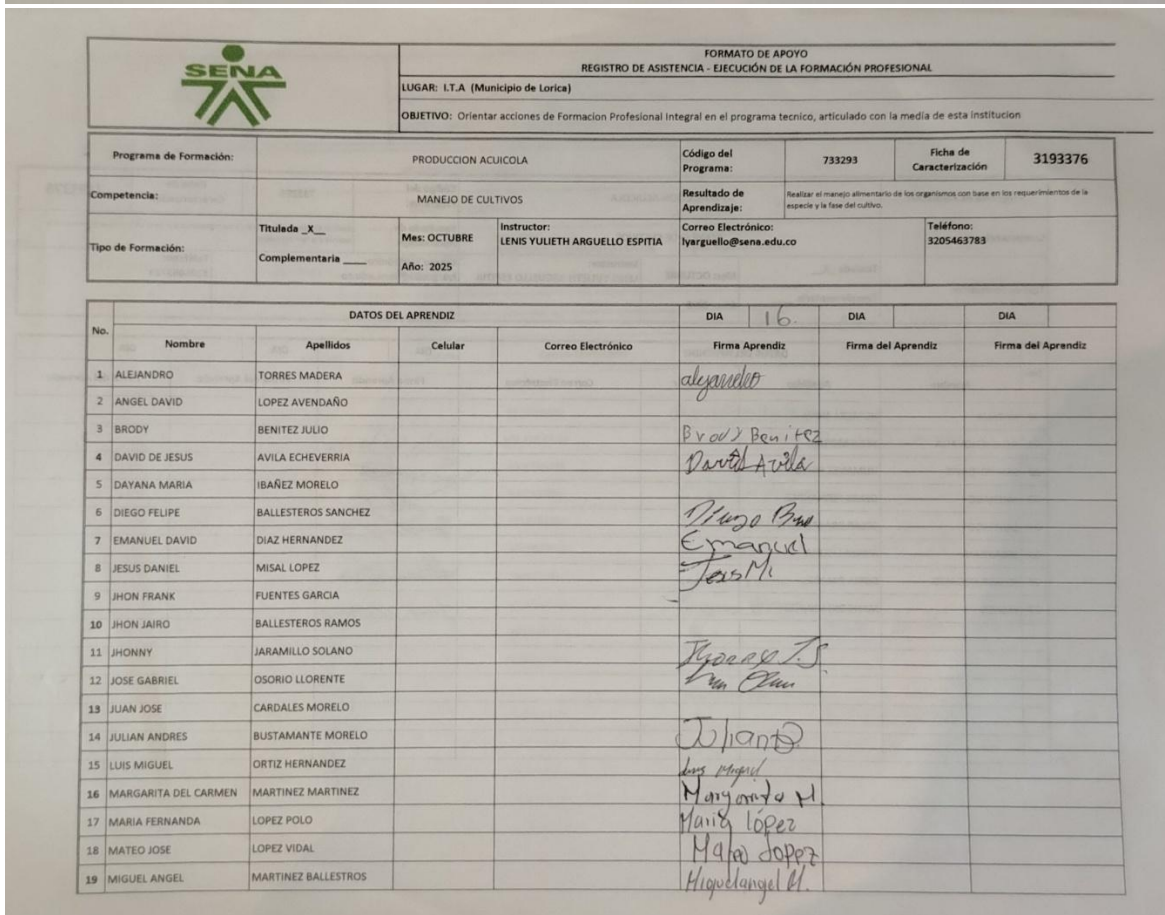 SENA
FORMATO DE APOYO
REGISTRO DE ASISTENCIA - EJECUCIÓN DE LA FORMACIÓN PROFESIONAL
LUGAR: I.T.A (Municipio de Lorica)
OBJETIVO: Orientar acciones de Formacion Profesional Integral en el programa tecnico, articulado con la media de esta institucion
Programa de Formación: PRODUCCION ACUICOLA Código del Programa: 733293 Ficha de Caracterización 3193376
Competencia: MANEJO DE CULTIVOS Resultado de Aprendizaje: Realizar el manejo alimentario de los organismos con base en los requerimientos de la especie y la fase del cultivo.
Tipo de Formación: Titulada _X__ Complementaria ____ Mes: OCTUBRE Año: 2025 Instructor: LENIS YULIETH ARGUELLO ESPITIA Correo Electrónico: lyarguello@sena.edu.co Teléfono: 3205463783
No. DATOS DEL APRENDIZ DIA 16. DIA DIA
Nombre Apellidos Celular Correo Electrónico Firma Aprendiz Firma del Aprendiz Firma del Aprendiz
1 ALEJANDRO TORRES MADERA alejandro
2 ANGEL DAVID LOPEZ AVENDAÑO
3 BRODY BENITEZ JULIO Brody Benitez
4 DAVID DE JESUS AVILA ECHEVERRIA David Avila
5 DAYANA MARIA IBAÑEZ MORELO
6 DIEGO FELIPE BALLESTEROS SANCHEZ Diego
7 EMANUEL DAVID DIAZ HERNANDEZ Emanuel
8 JESUS DANIEL MISAL LOPEZ
9 JHON FRANK FUENTES GARCIA
10 JHON JAIRO BALLESTEROS RAMOS
11 JHONNY JARAMILLO SOLANO Jhonny J.S
12 JOSE GABRIEL OSORIO LLORENTE
13 JUAN JOSE CARDALES MORELO
14 JULIAN ANDRES BUSTAMANTE MORELO
15 LUIS MIGUEL ORTIZ HERNANDEZ Luis Miguel
16 MARGARITA DEL CARMEN MARTINEZ MARTINEZ Margarita M
17 MARIA FERNANDA LOPEZ POLO Maria lópez
18 MATEO JOSE LOPEZ VIDAL Mateo Lopez
19 MIGUEL ANGEL MARTINEZ BALLESTROS Miguelangel M.